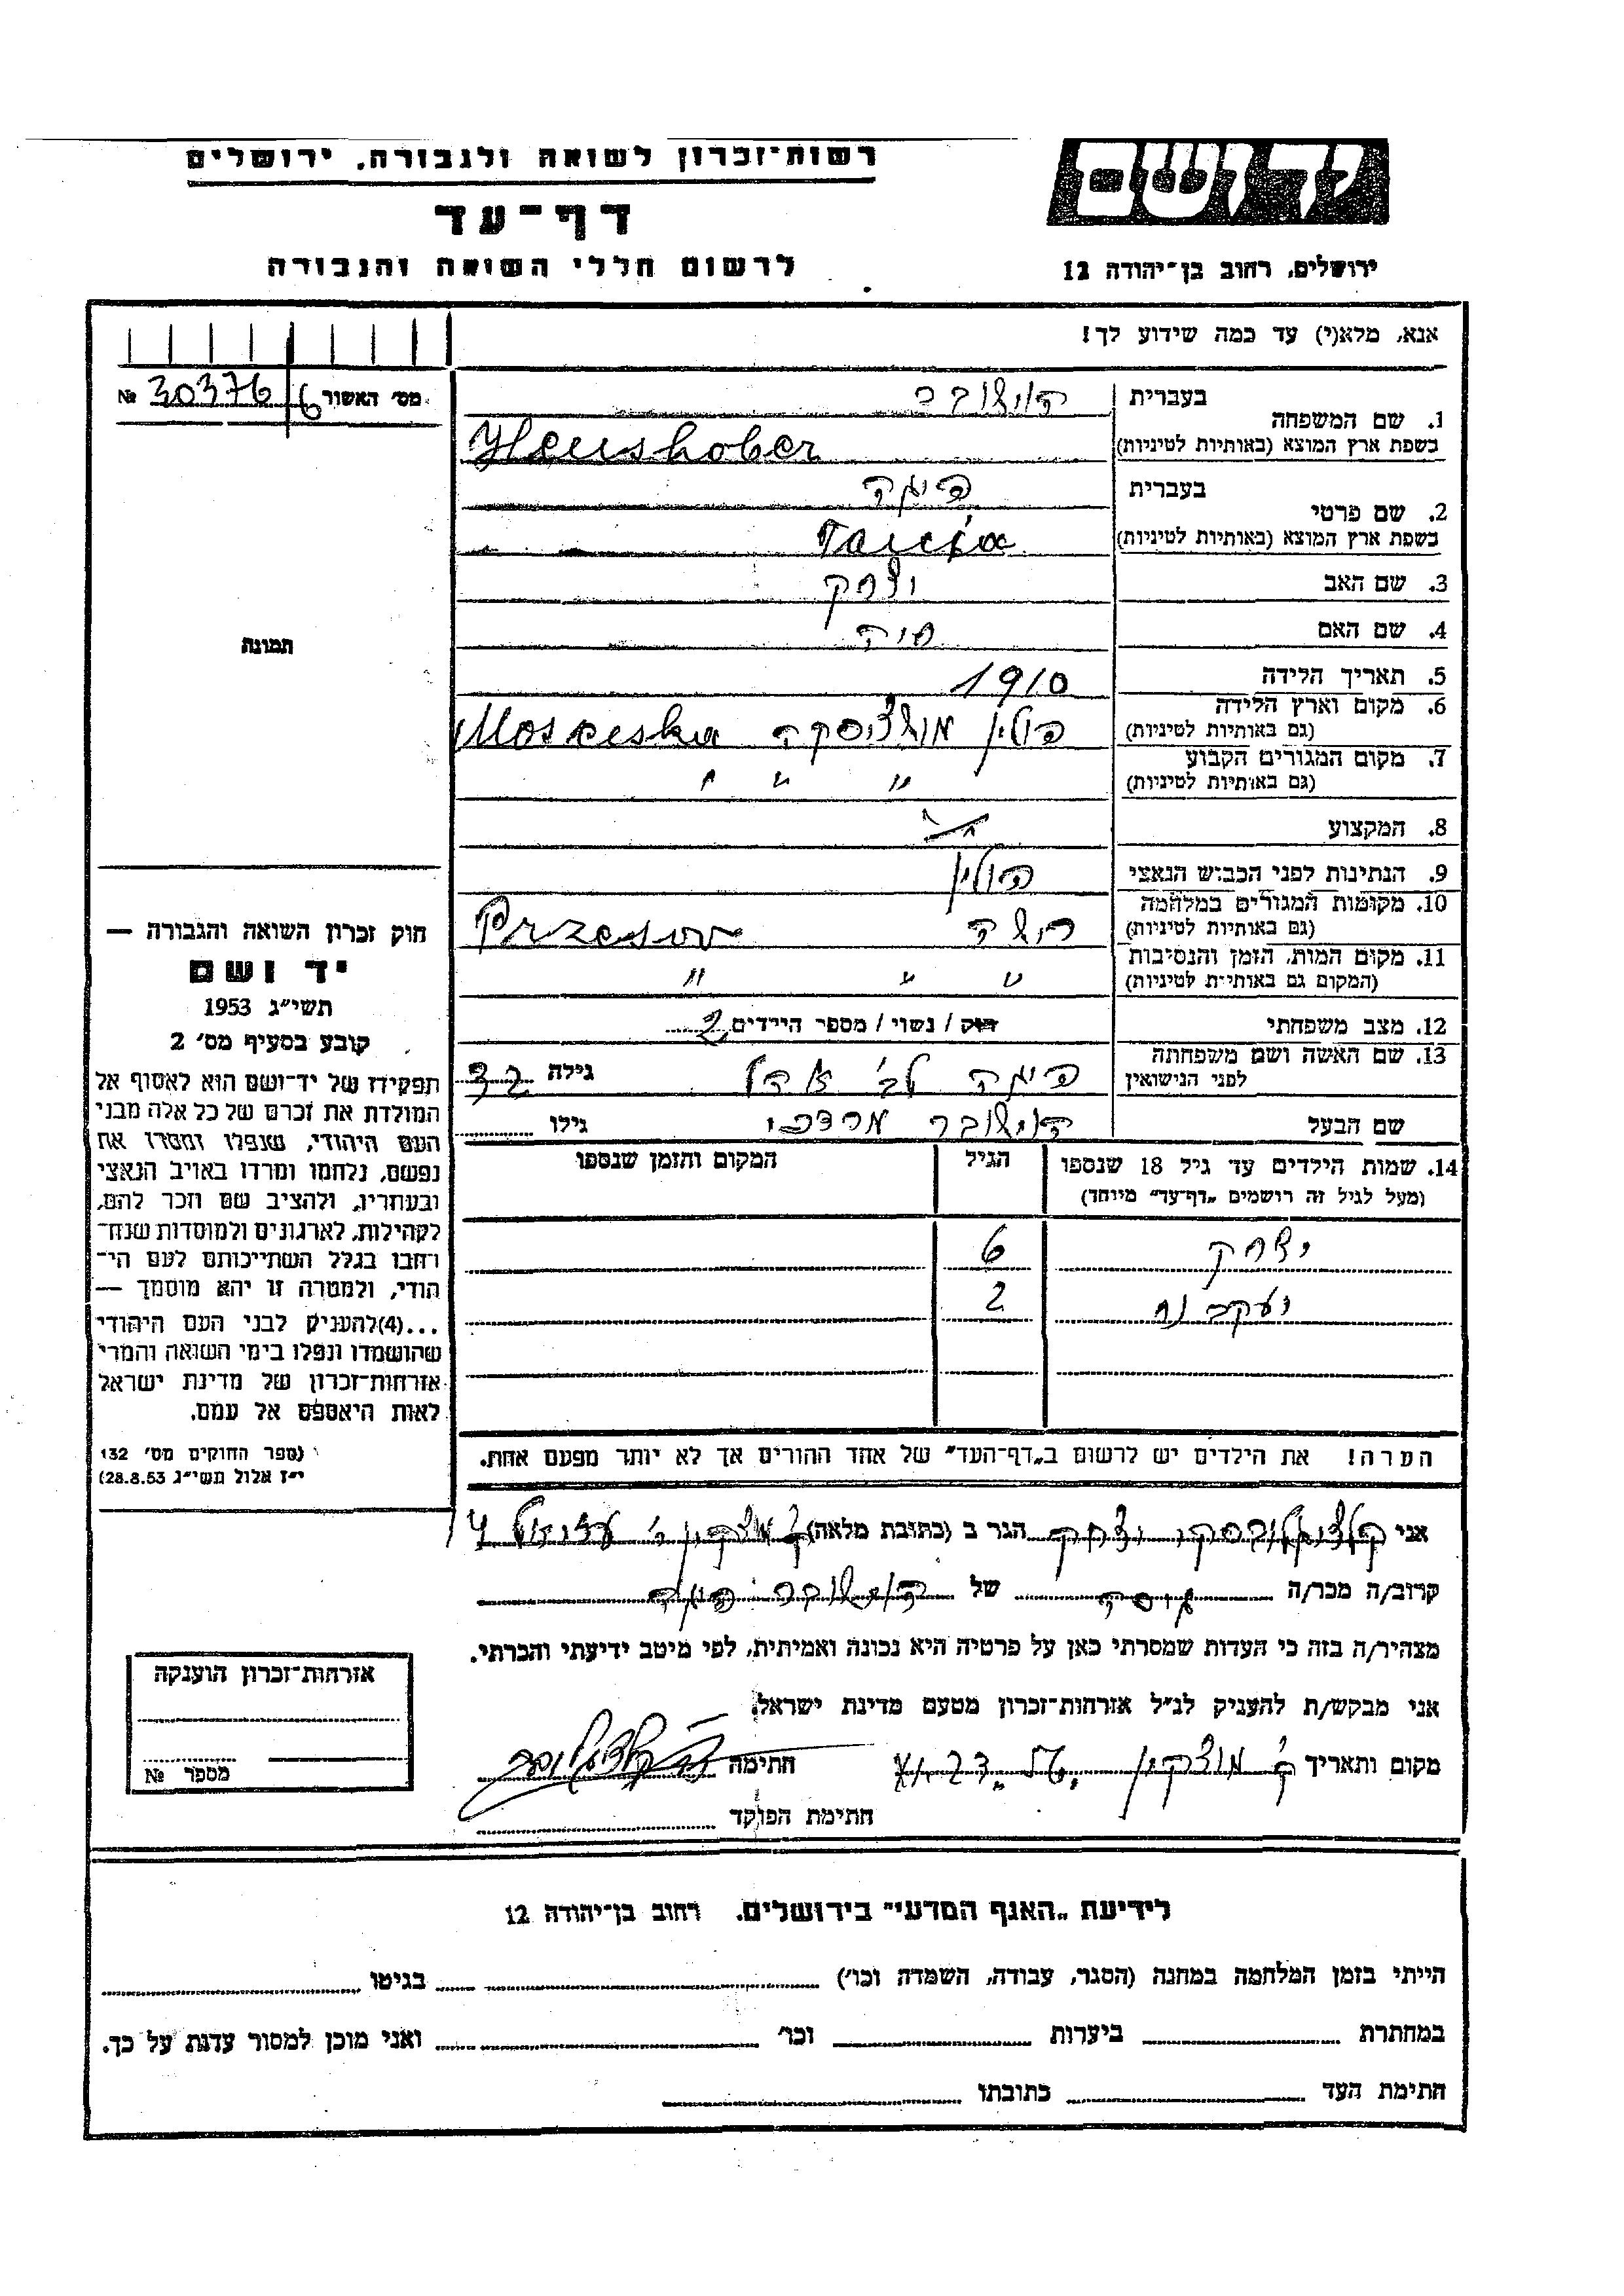 רשות־זכרון לשואה ולגבורה, ירושלים
יד ושם
דף־עד
לרשום חללי השואה והגבורה
ירושלים, רחוב בן־יהודה 12
אנא, מלא(י) עד כמה שידוע לך!
מס׳ האשור № 30376/6
1. שם המשפחה
בעברית
בשפת ארץ המוצא (באותיות לטיניות) Heushober
2. שם פרטי
בעברית
בשפת ארץ המוצא (באותיות לטיניות)
3. שם האב יצחק
4. שם האם חיה
5. תאריך הלידה 1910
6. מקום וארץ הלידה
(גם באותיות לטיניות) פולין
7. מקום המגורים הקבוע
(גם באותיות לטיניות) " " "
8. המקצוע
9. הנתינות לפני הכבוש הנאצי פולין
10. מקומות המגורים במלחמה
(גם באותיות לטיניות) Przesov
11. מקום המות, הזמן והנסיבות
(המקום גם באותיות לטיניות) " " "
12. מצב משפחתי רווק / נשוי / מספר הילדים 2
13. שם האשה ושם משפחתה
לפני הנישואין לב׳ גילה 32
שם הבעל מרדכי גילו
14. שמות הילדים עד גיל 18 שנספו
(מעל לגיל זה רושמים „דף־עד״ מיוחד)
הגיל
המקום והזמן שנספו
יצחק 6
יעקב נח 2
הערה! את הילדים יש לרשום ב„דף־העד״ של אחד ההורים אך לא יותר מפעם אחת.
תמונה
חוק זכרון השואה והגבורה —
יד ושם
תשי״ג 1953
קובע בסעיף מס׳ 2
תפקידו של יד־ושם הוא לאסוף אל
המולדת את זכרם של כל אלה מבני
העם היהודי, שנפלו ומסרו את
נפשם, נלחמו ומרדו באויב הנאצי
ובעוזריו, ולהציב שם וזכר להם,
לקהילות, לארגונים ולמוסדות שנח־
רחבו בגלל השתייכותם לעם הי־
הודי, ולמטרה זו יהא מוסמך —
...(4)להעניק לבני העם היהודי
שהושמדו ונפלו בימי השואה והמרי
אזרחות־זכרון של מדינת ישראל
לאות היאספם אל עמם.
(ספר החוקים מס׳ 132
י״ז אלול תשי״ג 28.8.53)
אני יצחק הגר ב (כתובת מלאה) ק׳ מוצקין 14
קרוב/ה מכר/ה של
מצהיר/ה בזה כי העדות שמסרתי כאן על פרטיה היא נכונה ואמיתית, לפי מיטב ידיעתי והכרתי.
אני מבקש/ת להעניק לנ״ל אזרחות־זכרון מטעם מדינת ישראל.
מקום ותאריך ק׳ מוצקין חתימה
חתימת הפוקד
אזרחות־זכרון הוענקה
מספר №
לידיעת „האגף המדעי״ בירושלים, רחוב בן־יהודה 12
הייתי בזמן המלחמה במחנה (הסגר, עבודה, השמדה וכו׳) בגיטו
במחתרת ביערות וכו׳ ואני מוכן למסור עדות על כך.
חתימת העד כתובתו